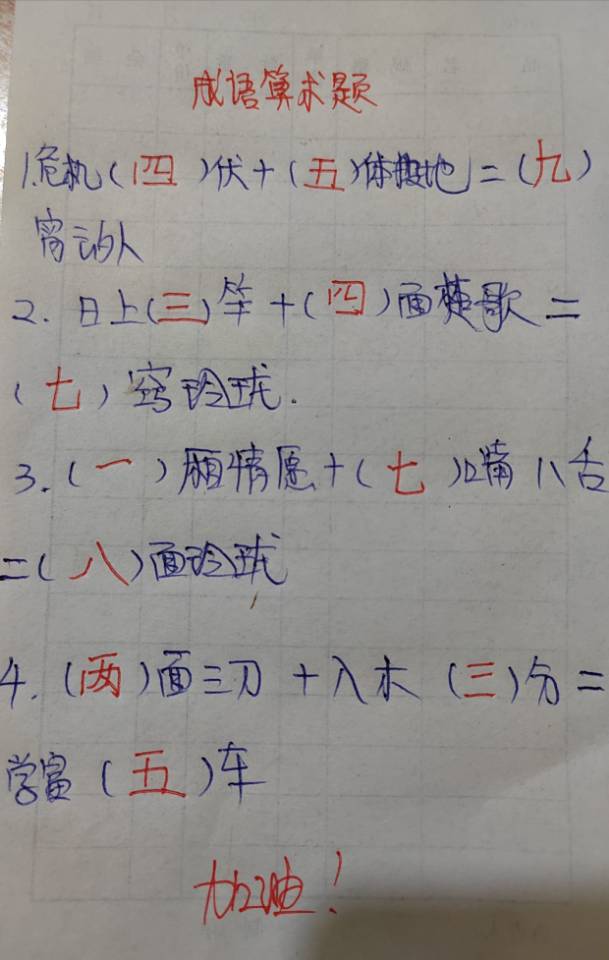 成语算术题
1.危机(四)伏+(五)体投地=(九)
霄云的人
2.日上(三)竿+(四)面楚歌=
(七)窍玲珑.
3.(一)厢情愿+(七)嘴八舌
=(八)面玲珑
4.(两)面三刀+入木(三)分=
学富(五)车
加油!